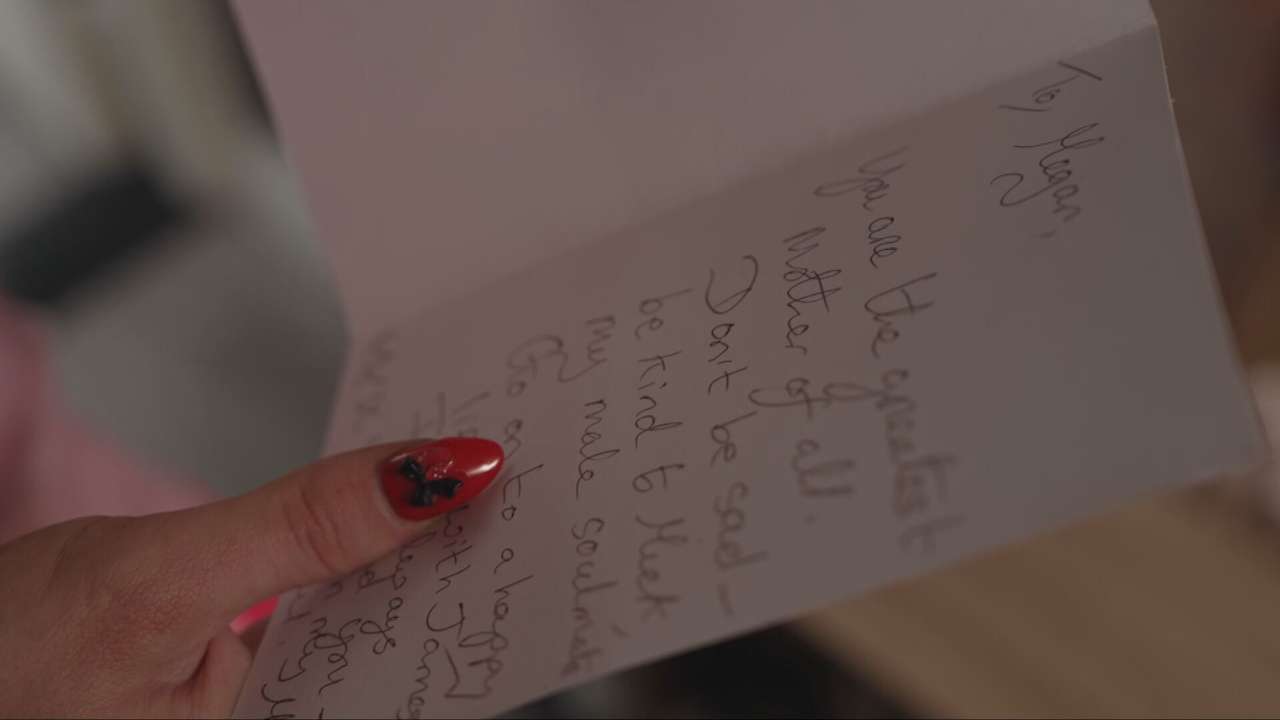 To, Megan,
You are the greatest
Mother of all.
Don't be sad -
be kind to Mick
my male soulmate
Go on to a happy
with James
always
you -